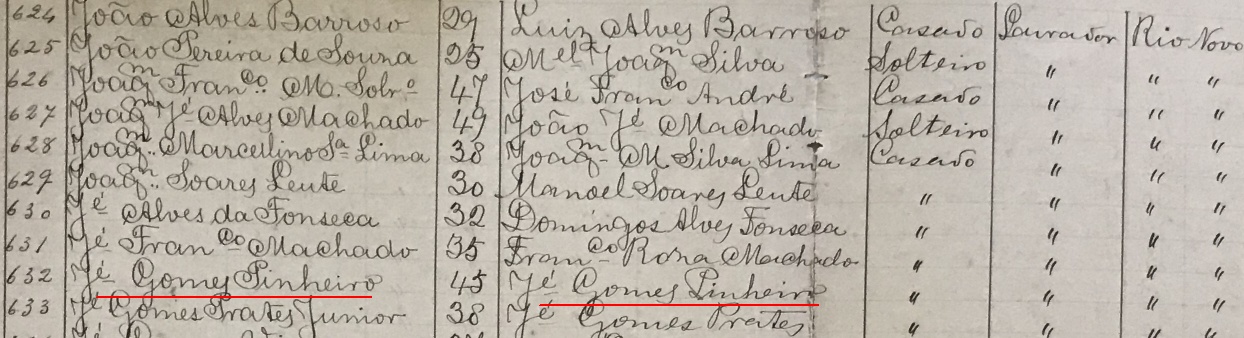 624 João Alves Barroso 29 Luiz Alves Barroso Casado Lavrador Rio Novo
625 João Pereira de Souza 25 Mel Joaqm Silva Solteiro " " "
626 Joaqm Franco M. Sobro 47 José Franco André Casado " " "
627 Joaqm Jé Alves Machado 49 João Jé Machado Solteiro " " "
628 Joaqm Marcellino Sa Lima 38 Joaqm M. Silva Lima Casado " " "
629 Joaqm Soares Leute 30 Manoel Soares Leute " " " "
630 Jé Alves da Fonseca 32 Domingos Alves Fonseca " " " "
631 Jé Franco Machado 35 Franco Roza Machado " " " "
632 Jé Gomes Pinheiro 45 Jé Gomes Pinheiro " " " "
633 Jé Gomes Prates Junior 38 Jé Gomes Prates " " " "